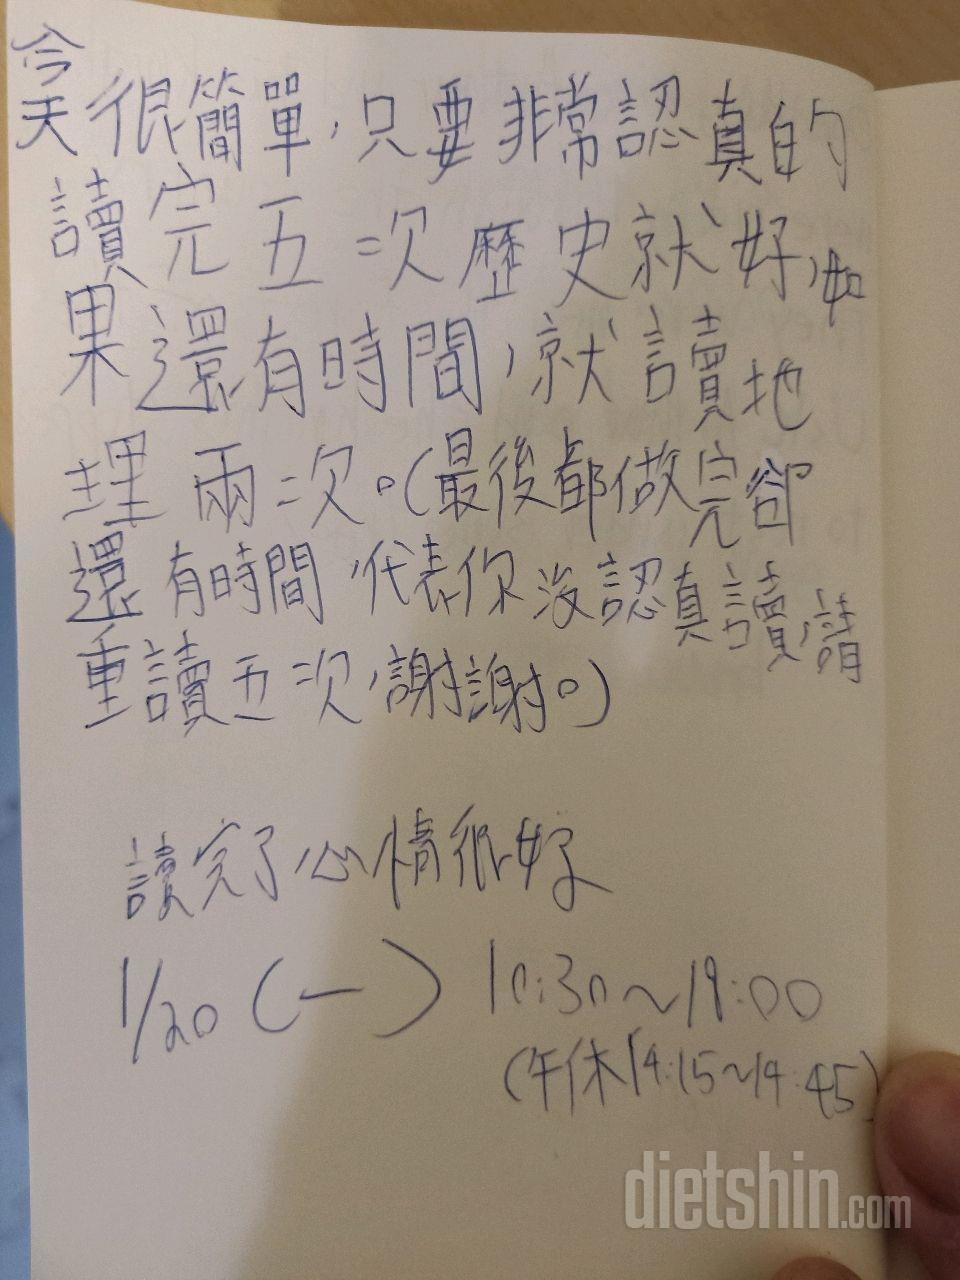 今天很簡單，只要非常認真的
讀完五次歷史就好，如
果還有時間，就讀地
理兩次。(最後都做完卻
還有時間，代表你沒認真讀，請
重讀五次，謝謝。)
讀完了心情很好
1/20 (一) 10:30～19:00
(午休14:15～14:45)
dietshin.com